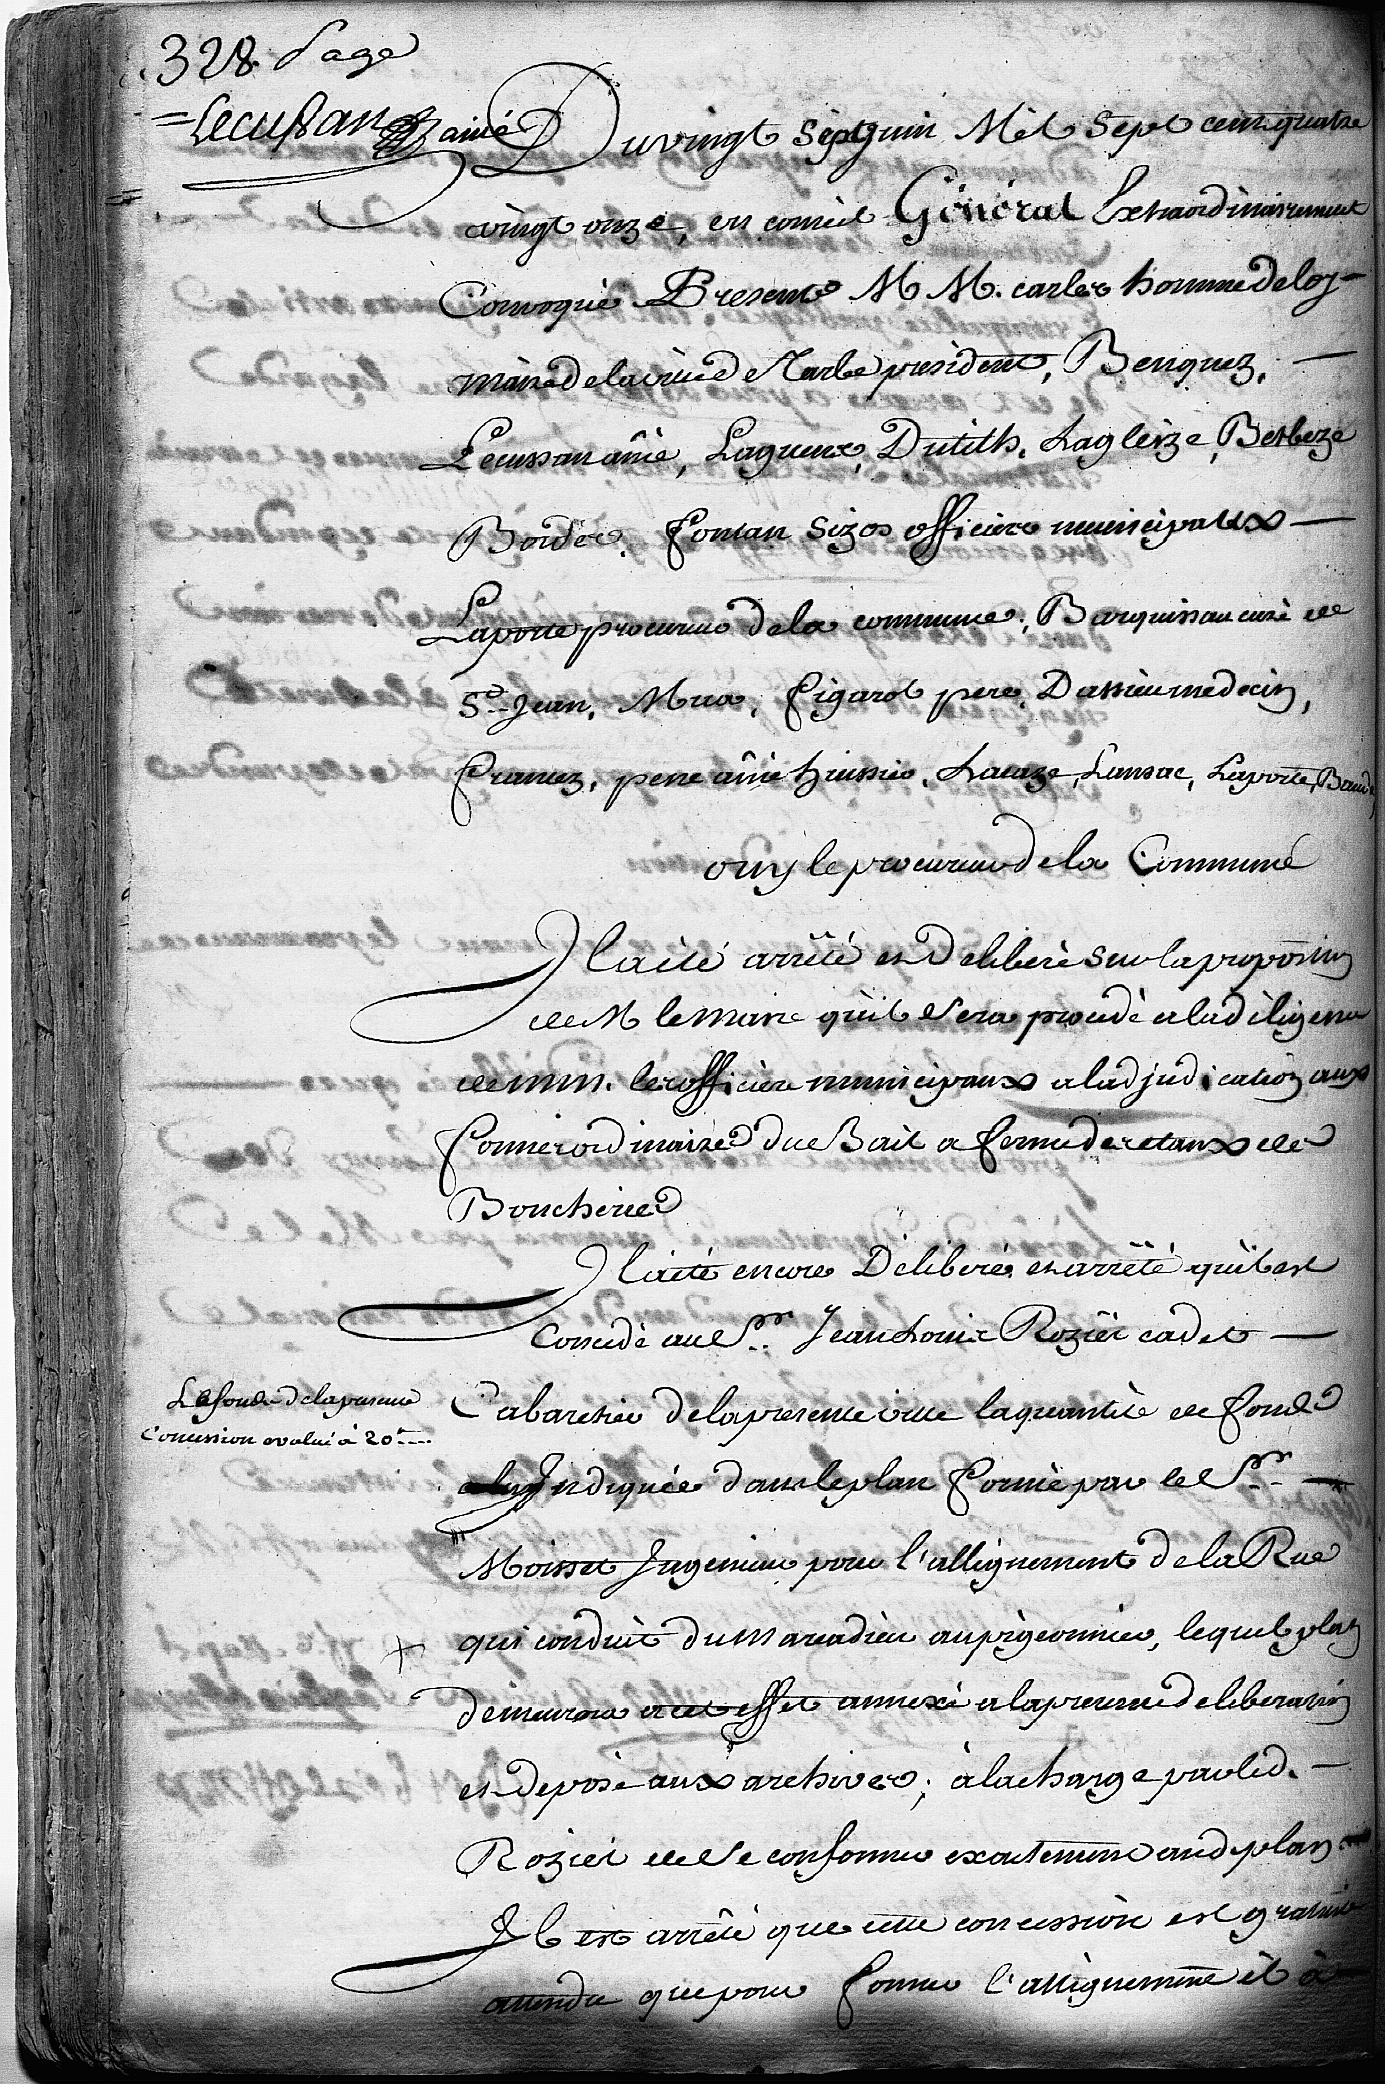 328. Page
Lecussan ainé
Du vingt sept juin Mil sept cens quatre
vingt onze, en conseil Général Extraordinairement
Convoqué Presents M M. carles homme de loy
maire de la ville de Tarbe président, Benquez,
Lecussan ainé, Lagueux, Dutilh, Lagleize, Berbeze
Bordes, fontan Sizos officiers municipaux
Laporte procureur de la commune, Barquissau curé de
St. Jean, Mua, figarol pere, Dassieu medecin,
francez, pere ainé huissier, Lacaze, Lansac, Laporte,
ouy le procureur de la Commune
Il a été arrêté et Deliberé sur la proposition
de M le Maire qu'il sera procédé a la diligence
de mm. les officiers municipaux a l'adjudication aux
formes ordinaires du Bail a ferme des etaux de
Boucherie
Il a été encore Deliberé et arrêté qu'il est
Concedé au Sr. Jean Louis Rozièr cadet
Le fonds de la presente
Concession evalué à 20 tt
Cabaretier de la presente ville la quantité de fonds
Indiquée dans le plan formé par le Sr.
Moisset Ingenieur pour l'allignement de la Rue
qui conduit du Marcadieu au pigeonnier, lequel plan
demeurera a cet effet annexé a la presente deliberation
et deposé aux archives, à la charge par led.
Rozier de se conformer exactement aud plan.
Il est arrêté que cette concession est gratuite
attendu que pour former l'allignement il a